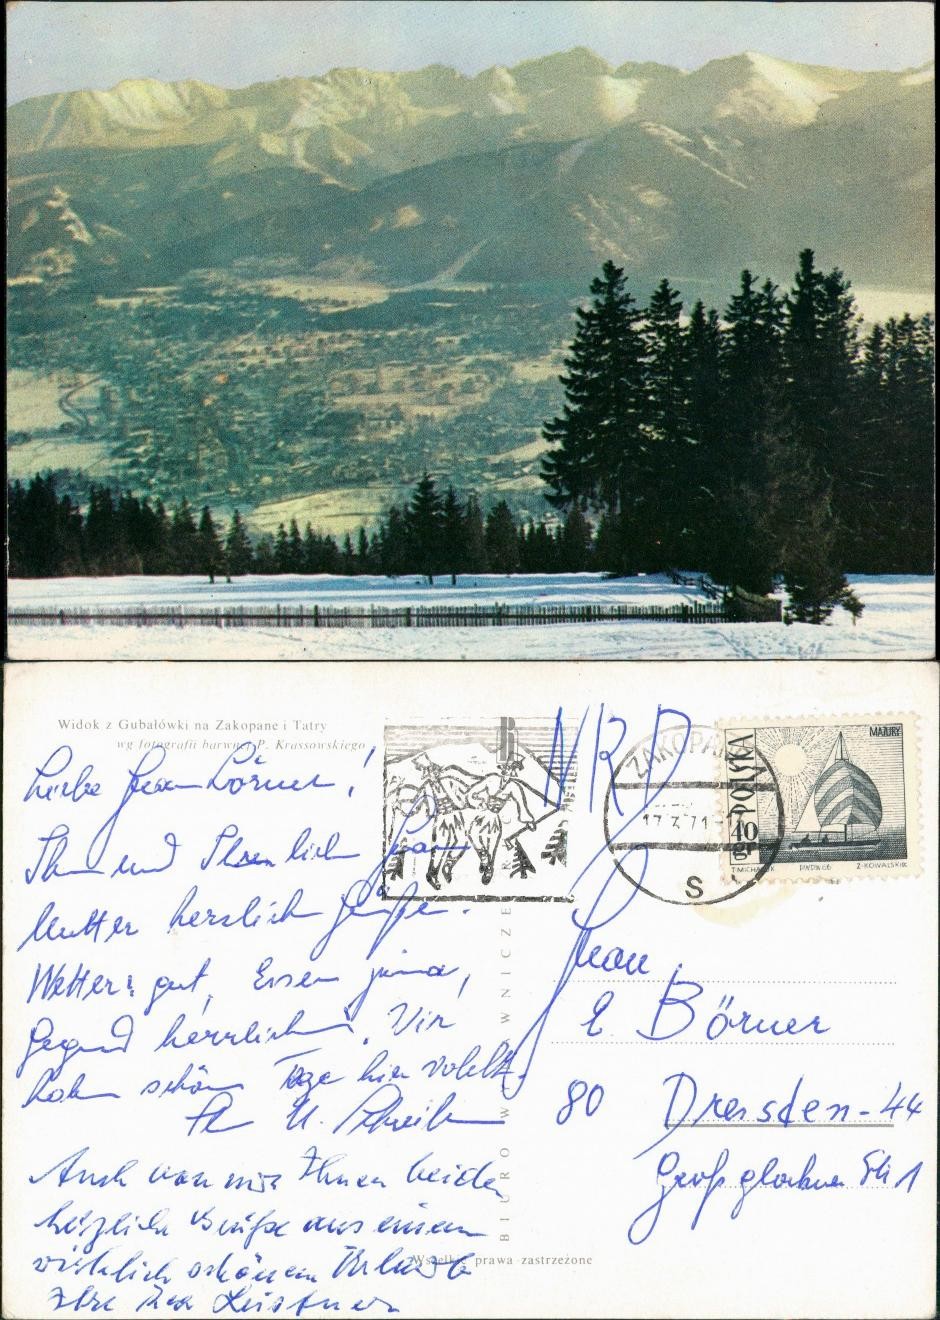 Widok z Gubałówki na Zakopane i Tatry
wg fotografii barwnej P. Krassowskiego
Liebe Frau Börner!
Ihnen und Ihrer lieben Frau
Mutter herzlich Grüße.
Wetter gut, Essen prima,
Gegend herrlich. Wir
haben schöne Tage hier verlebt.
Ihr H. Schreiber
Auch von mir Ihnen beiden
herzliche Grüße aus einem
wirklich schönen Urlaub
Ihre Leistner
BIURO WYDAWNICZE
Wszelkie prawa zastrzeżone
NRD
ZAKOPANE
17.3.71
S
POLSKA
MAZURY
40
gr
T.MICHALUK PWPW.66 Z.KOWALSKI
Frau
E. Börner
80 Dresden-44
Großglockner Str 1